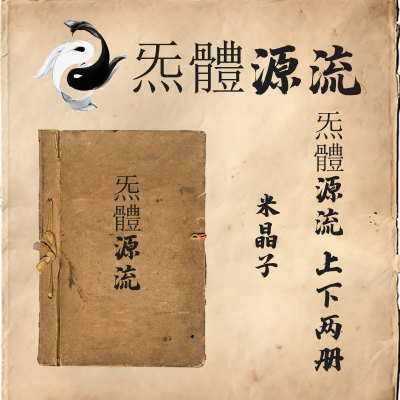 炁體源流
炁體源流 上下两册
米晶子
炁體源流